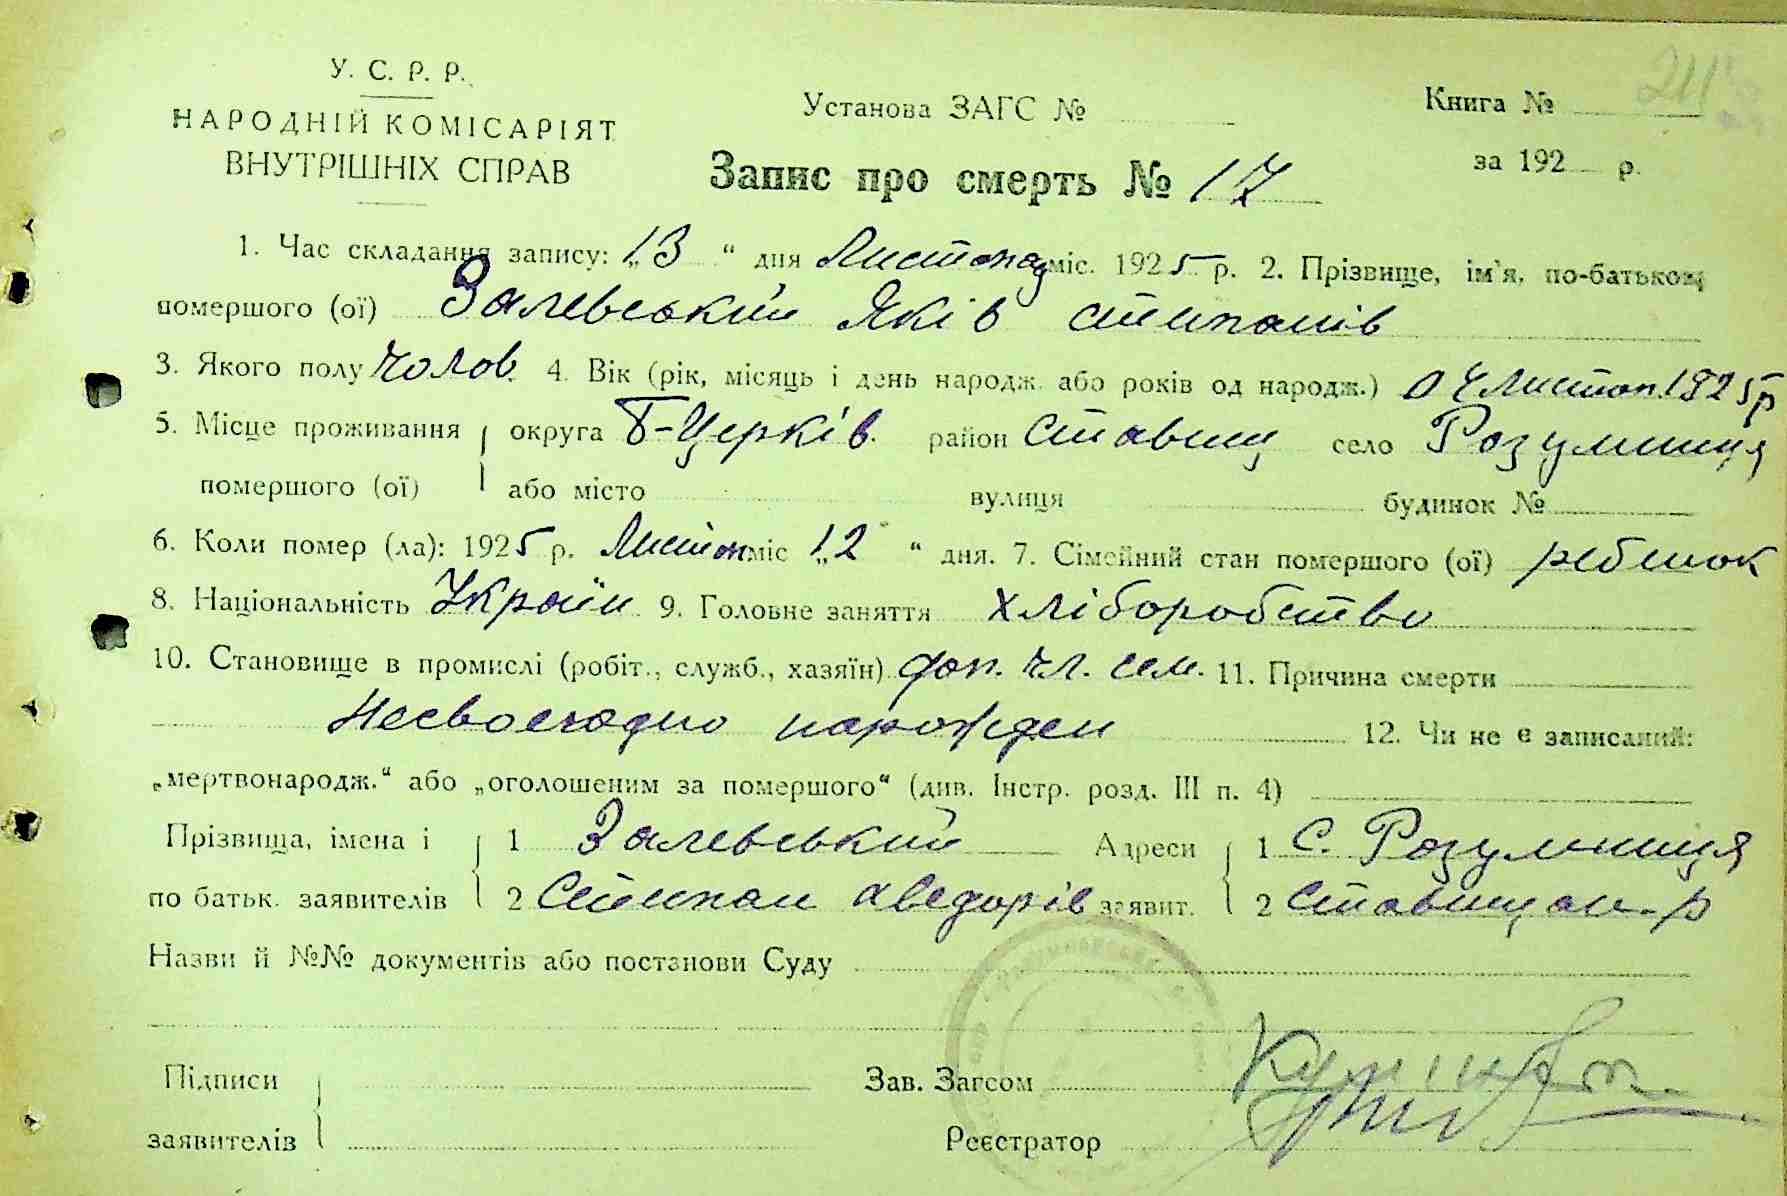 У. С. Р. Р.
НАРОДНІЙ КОМІСАРІЯТ
ВНУТРІШНІХ СПРАВ
Установа ЗАГС №
Книга №
211
за 192 р.
Запис про смерть № 17
1. Час складання запису: „13“ дня Листопад міс. 1925 р. 2. Прізвище, ім'я, по-батькові
помершого (ої) Залевський Яків Степанів
3. Якого полу Чолов. 4. Вік (рік, місяць і день народж. або років од народж.) 04 Листоп. 1925 р
5. Місце проживання помершого (ої) округа Б-Церків. район Ставищ село Розумниця
або місто вулиця будинок №
6. Коли помер (ла): 1925 р. Листоп міс „12“ дня. 7. Сімейний стан помершого (ої) ребенок
8. Національність Україн 9. Головне заняття хліборобство
10. Становище в промислі (робіт., служб., хазяїн) доп. чл. сем. 11. Причина смерти
нарожден 12. Чи не є записаний:
„мертвонародж.“ або „оголошеним за помершого“ (див. Інстр. розд. III п. 4)
Прізвища, імена і по батьк. заявителів
1 Залевський
2 Степан Аведорів
Адреси заявит.
1 С. Розумниця
2 Ставищан. р
Назви й №№ документів або постанови Суду
Підписи заявителів
Зав. Загсом
Реєстратор